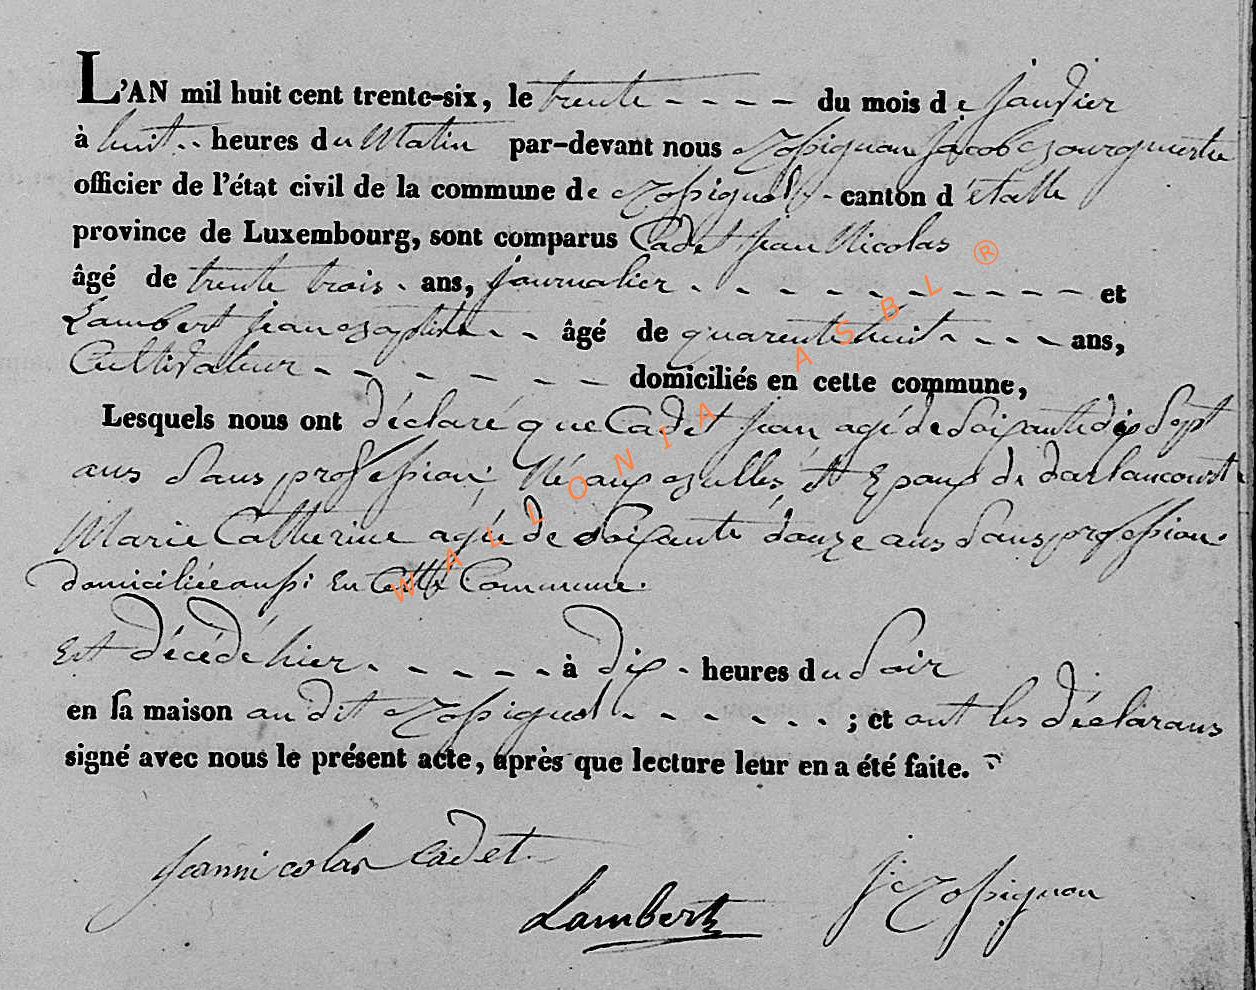 L'AN mil huit cent trente-six, le trente - - - - du mois de Janvier
à huit - - heures du Matin par-devant nous Rossignon Jacob Bourgmestre
officier de l'état civil de la commune de Rossignol - canton d'étalle
province de Luxembourg, sont comparus Cadet Jean Nicolas
âgé de trente trois - ans, journalier - - - - - - - - - - - et
Lambert Jean Baptiste - - âgé de quarente huit - - - - ans,
Cultivateur - - - - - - domiciliés en cette commune,
Lesquels nous ont déclaré que Cadet Jean agé de Soixante dix Sept
ans Sans profession, Né aux Bulles, et Epoux de Darlancourt
Marie Catherine agée de Soixante douze ans Sans profession.
domiciliée aussi En Cette Commune.
Est décédé hier - - - - - à dix - heures du Soir
en sa maison au dit Rossignol - - - - - - ; et ont les déclarans
signé avec nous le présent acte, après que lecture leur en a été faite.
Jeannicolas Cadet
Lambert
J Rossignon
WALLONIA ASBL ®